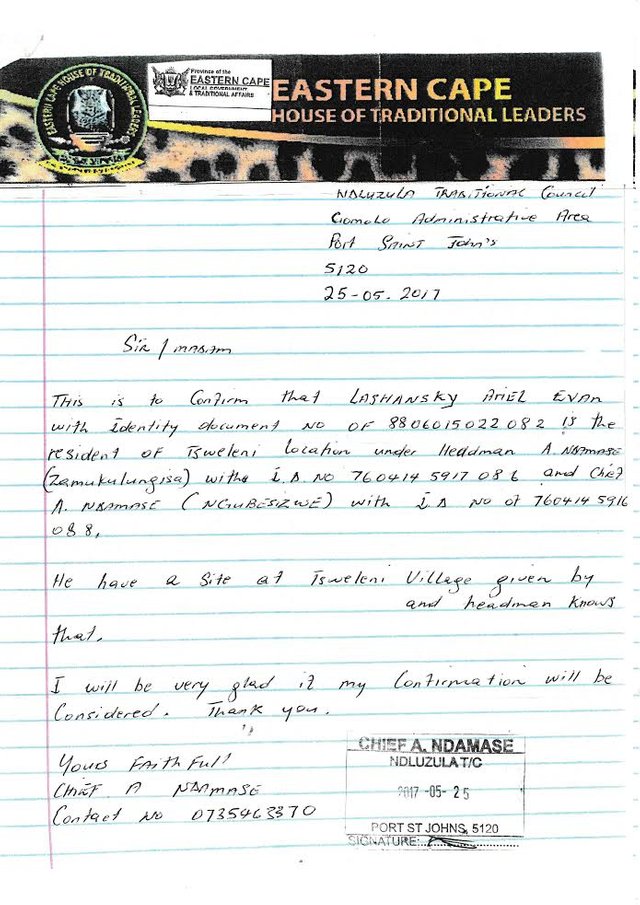 EASTERN CAPE HOUSE OF TRADITIONAL LEADERS
Province of the
EASTERN CAPE
LOCAL GOVERNMENT
& TRADITIONAL AFFAIRS
EASTERN CAPE
HOUSE OF TRADITIONAL LEADERS
NDLUZULA TRADITIONAL Council
Gomolo Administrative Area
Port SAINT John's
5120
25-05.2017
SIR / MADAM
THIS is to Confirm that LASHANSKY ARIEL EVAN
with Identity document NO OF 8806015022082 is the
resident of Tsweleni location under Heddman A. NDAMASE
(Zamukulungisa) with I.D NO 760414 5917 086 and Chief
A. NDAMASE (NGUBESIZWE) with I.D NO of 760414 5916
088,
He have a Site at Tsweleni Village given by
and headman knows
that.
I will be very glad if my Confirmation will be
Considered. Thank you.
Yours FAITHFULL
CHIEF A NDAMASE
Contact No 0735463370
CHIEF A. NDAMASE
NDLUZULA T/C
2017 -05- 25
PORT ST JOHNS, 5120
SIGNATURE: